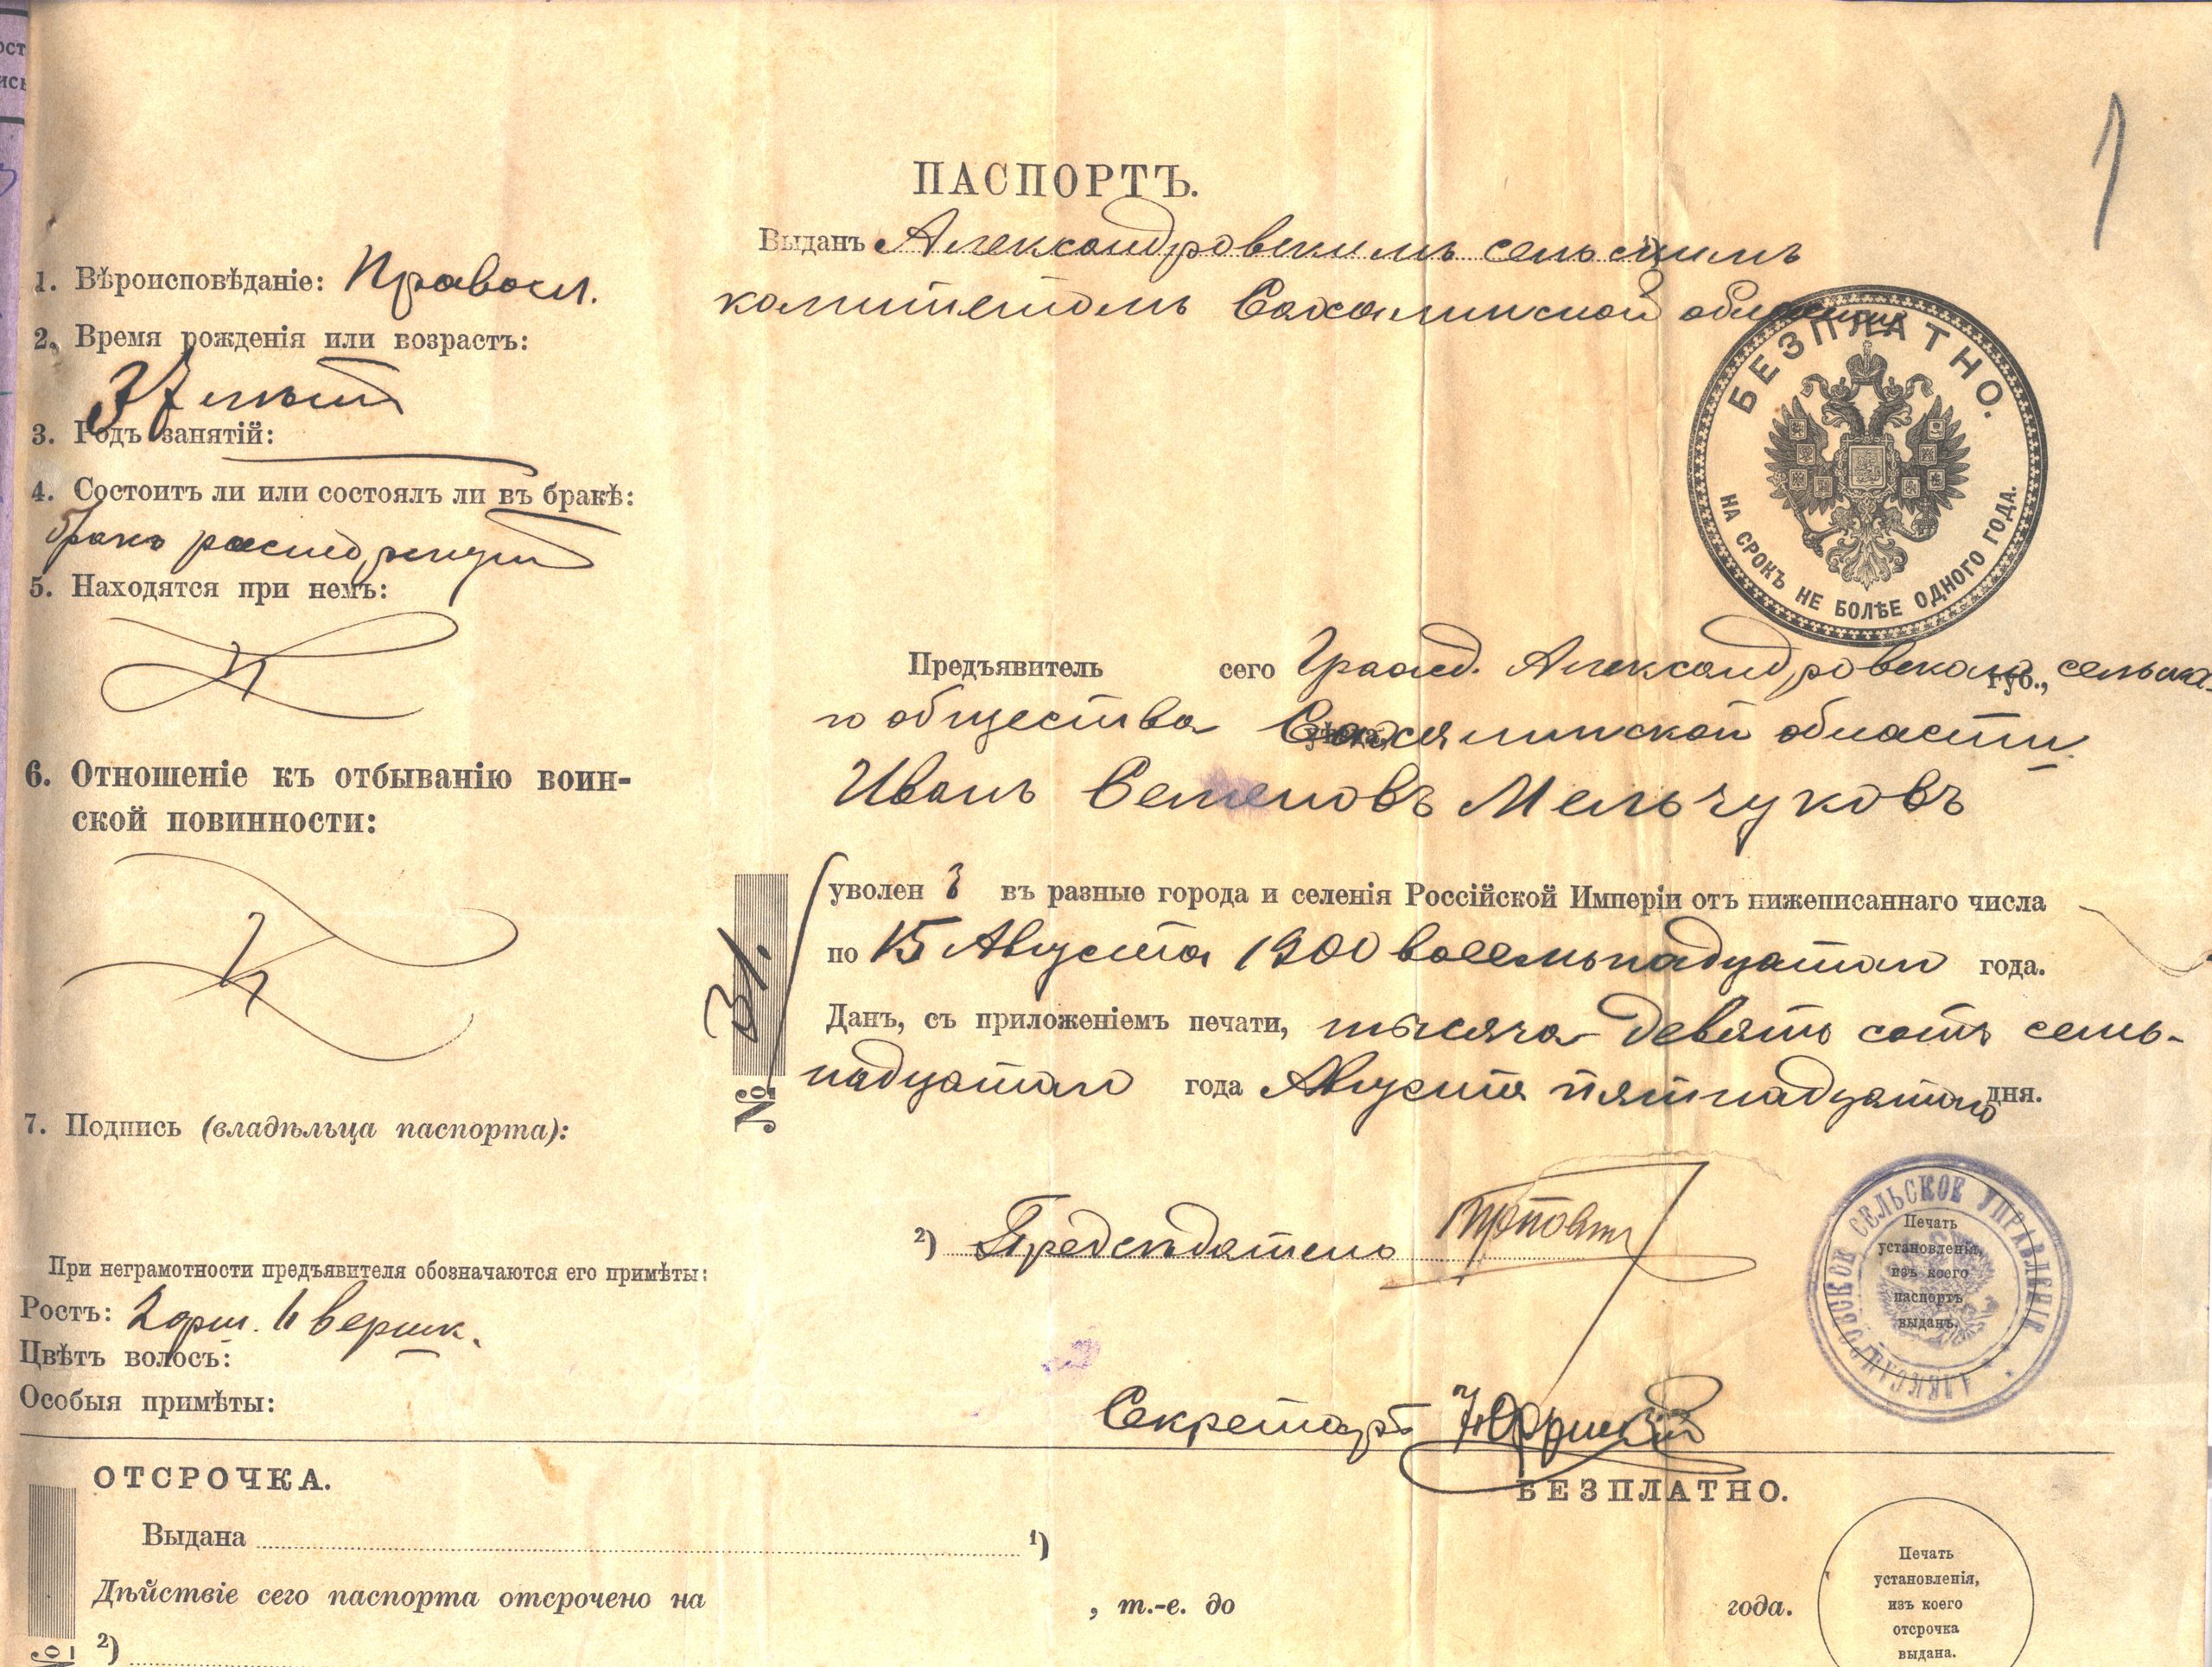 1
ПАСПОРТЪ.
Выданъ Александровскимъ сельскимъ
комитетомъ Сахалинской области
БЕЗПЛАТНО.
НА СРОКЪ НЕ БОЛѢЕ ОДНОГО ГОДА.
1. Вѣроисповѣданіе: Правосл.
2. Время рожденія или возрастъ:
37 лѣтъ
3. Родъ занятій:
4. Состоитъ ли или состоялъ ли въ бракѣ:
бракъ расторгнутъ
5. Находятся при немъ:
6. Отношеніе къ отбыванію воин-
ской повинности:
7. Подпись (владѣльца паспорта):
При неграмотности предъявителя обозначаются его примѣты:
Ростъ: 2 арш. 4 вершк.
Цвѣтъ волосъ:
Особыя примѣты:
Предъявитель сего Гражд. Александровскаго губ., сельска-
го общества уѣзда Сахалинской области
Иванъ Семеновъ Мельчуковъ
№ 31.
уволенъ въ разные города и селенія Россійской Имперіи отъ нижеписаннаго числа
по 15 Августа 1900 восемьнадцатаго года.
Данъ, съ приложеніемъ печати, тысяча девять сотъ семь-
надцатаго года Августа пятнадцатаго дня.
2) Предсѣдатель
АЛЕКСАНДРОВСКОЕ СЕЛЬСКОЕ УПРАВЛЕНІЕ
Печать
установленія,
изъ коего
паспортъ
выданъ.
Секретарь
ОТСРОЧКА.
БЕЗПЛАТНО.
Выдана 1)
Дѣйствіе сего паспорта отсрочено на , т.-е. до года.
2)
№
Печать
установленія,
изъ коего
отсрочка
выдана.